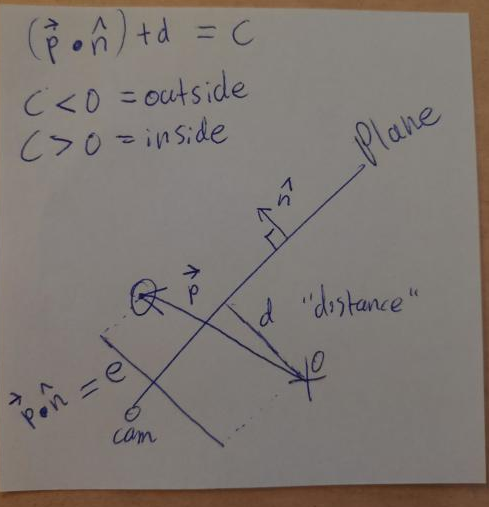 (p⃗ • n̂) + d = C
C < 0 = outside
C > 0 = inside
Plane
n̂
p⃗
d "distance"
O
p⃗•n̂ = e
cam